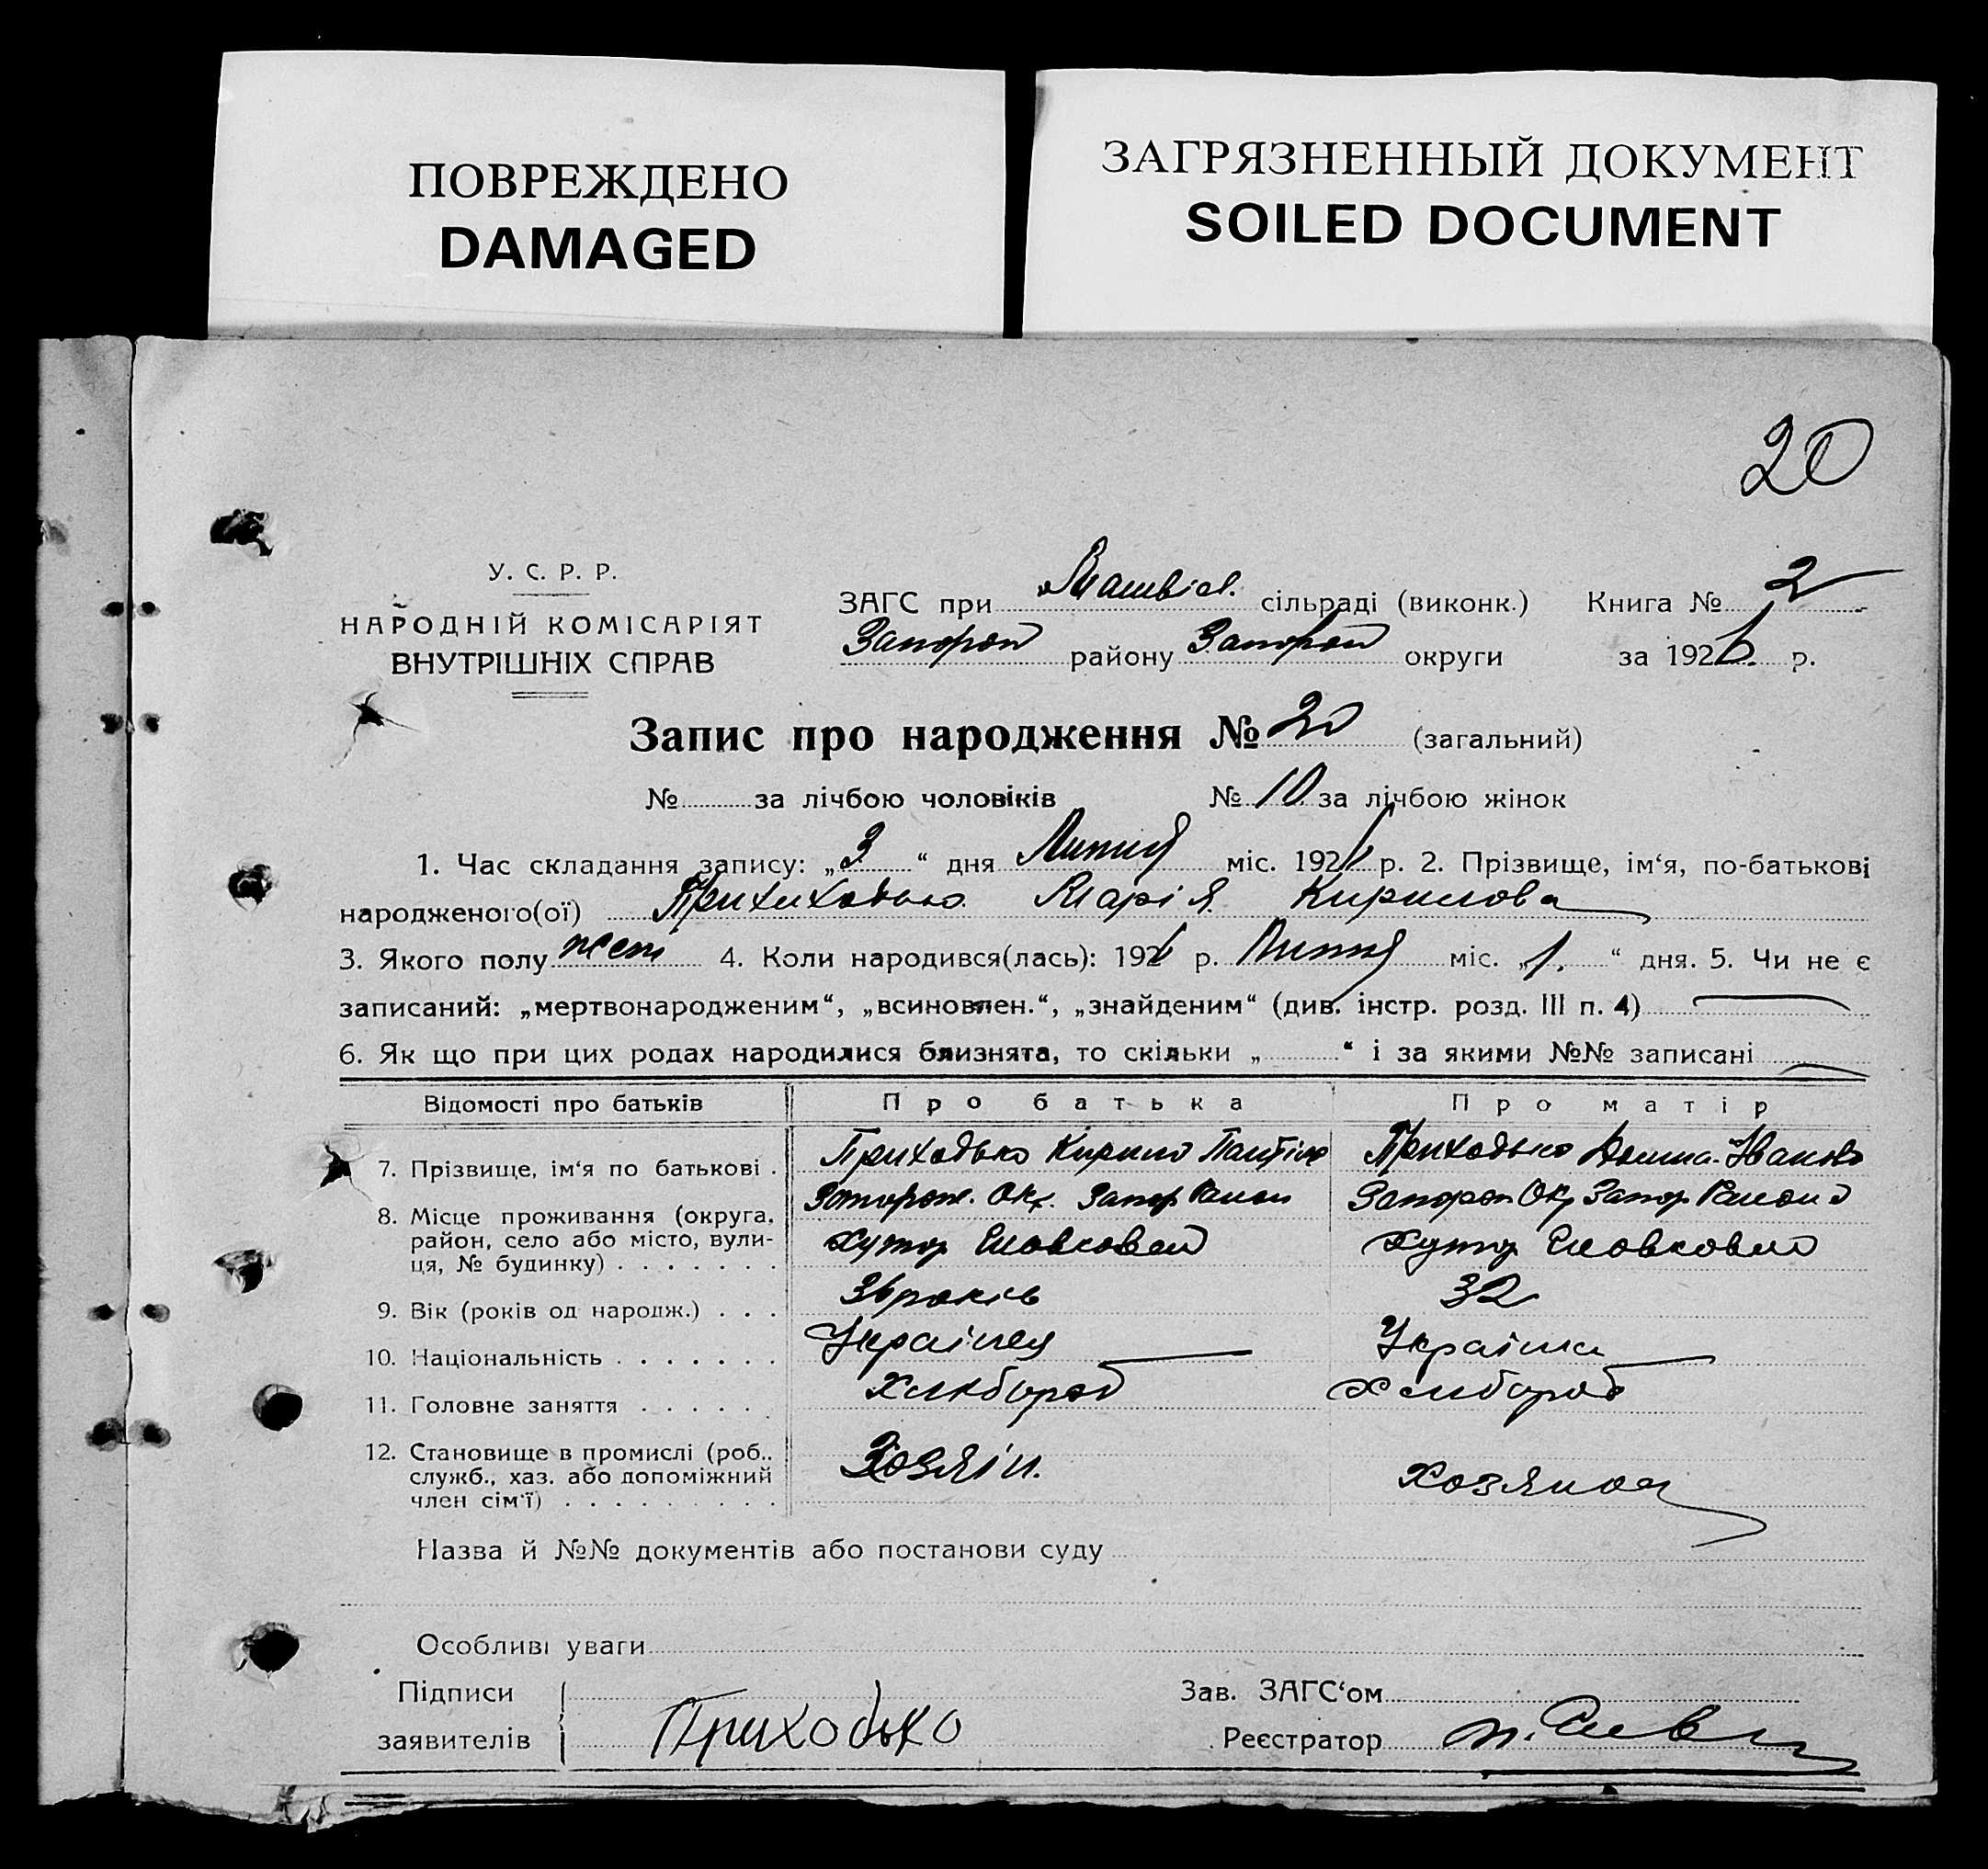 ПОВРЕЖДЕНО
DAMAGED
ЗАГРЯЗНЕННЫЙ ДОКУМЕНТ
SOILED DOCUMENT
20
У. С. Р. Р.
НАРОДНІЙ КОМІСАРІЯТ
ВНУТРІШНІХ СПРАВ
ЗАГС при сільраді (виконк.) Книга № 2
Запороз району Запороз округи за 1926 р.
Запис про народження № 20 (загальний)
№ за лічбою чоловіків № 10 за лічбою жінок
1. Час складання запису: „3“ дня Липня міс. 1926 р. 2. Прізвище, ім‘я, по-батькові
народженого(ої) Марія Кирилова
3. Якого полу жені 4. Коли народився(лась): 1926 р. Липня міс. „1.“ дня. 5. Чи не є
записаний: „мертвонародженим“, „всиновлен.“, „знайденим“ (див. інстр. розд. III п. 4)
6. Як що при цих родах народилися близнята, то скільки „ “ і за якими №№ записані
Відомості про батьків Про батька Про матір
7. Прізвище, ім‘я по батькові . Приходько Кирило Приходько Іванова
8. Місце проживання (округа, Запорож. Окр. Запор Район Запороз Окр Запор Району
район, село або місто, вули- Хутор Хутор
ця, № будинку) . . . . . . .
9. Вік (років од народж.) . . . 36 років 32
10. Національність . . . . . . . Українец Українка
11. Головне заняття . . . . . Хлібороб Хлібороб
12. Становище в промислі (роб., Хозяїн.
служб., хаз. або допоміжний Хозяйка
член сім‘ї) . . . . . . . . .
Назва й №№ документів або постанови суду
Особливі уваги
Підписи Зав. ЗАГС‘ом
заявителів Приходько Реєстратор